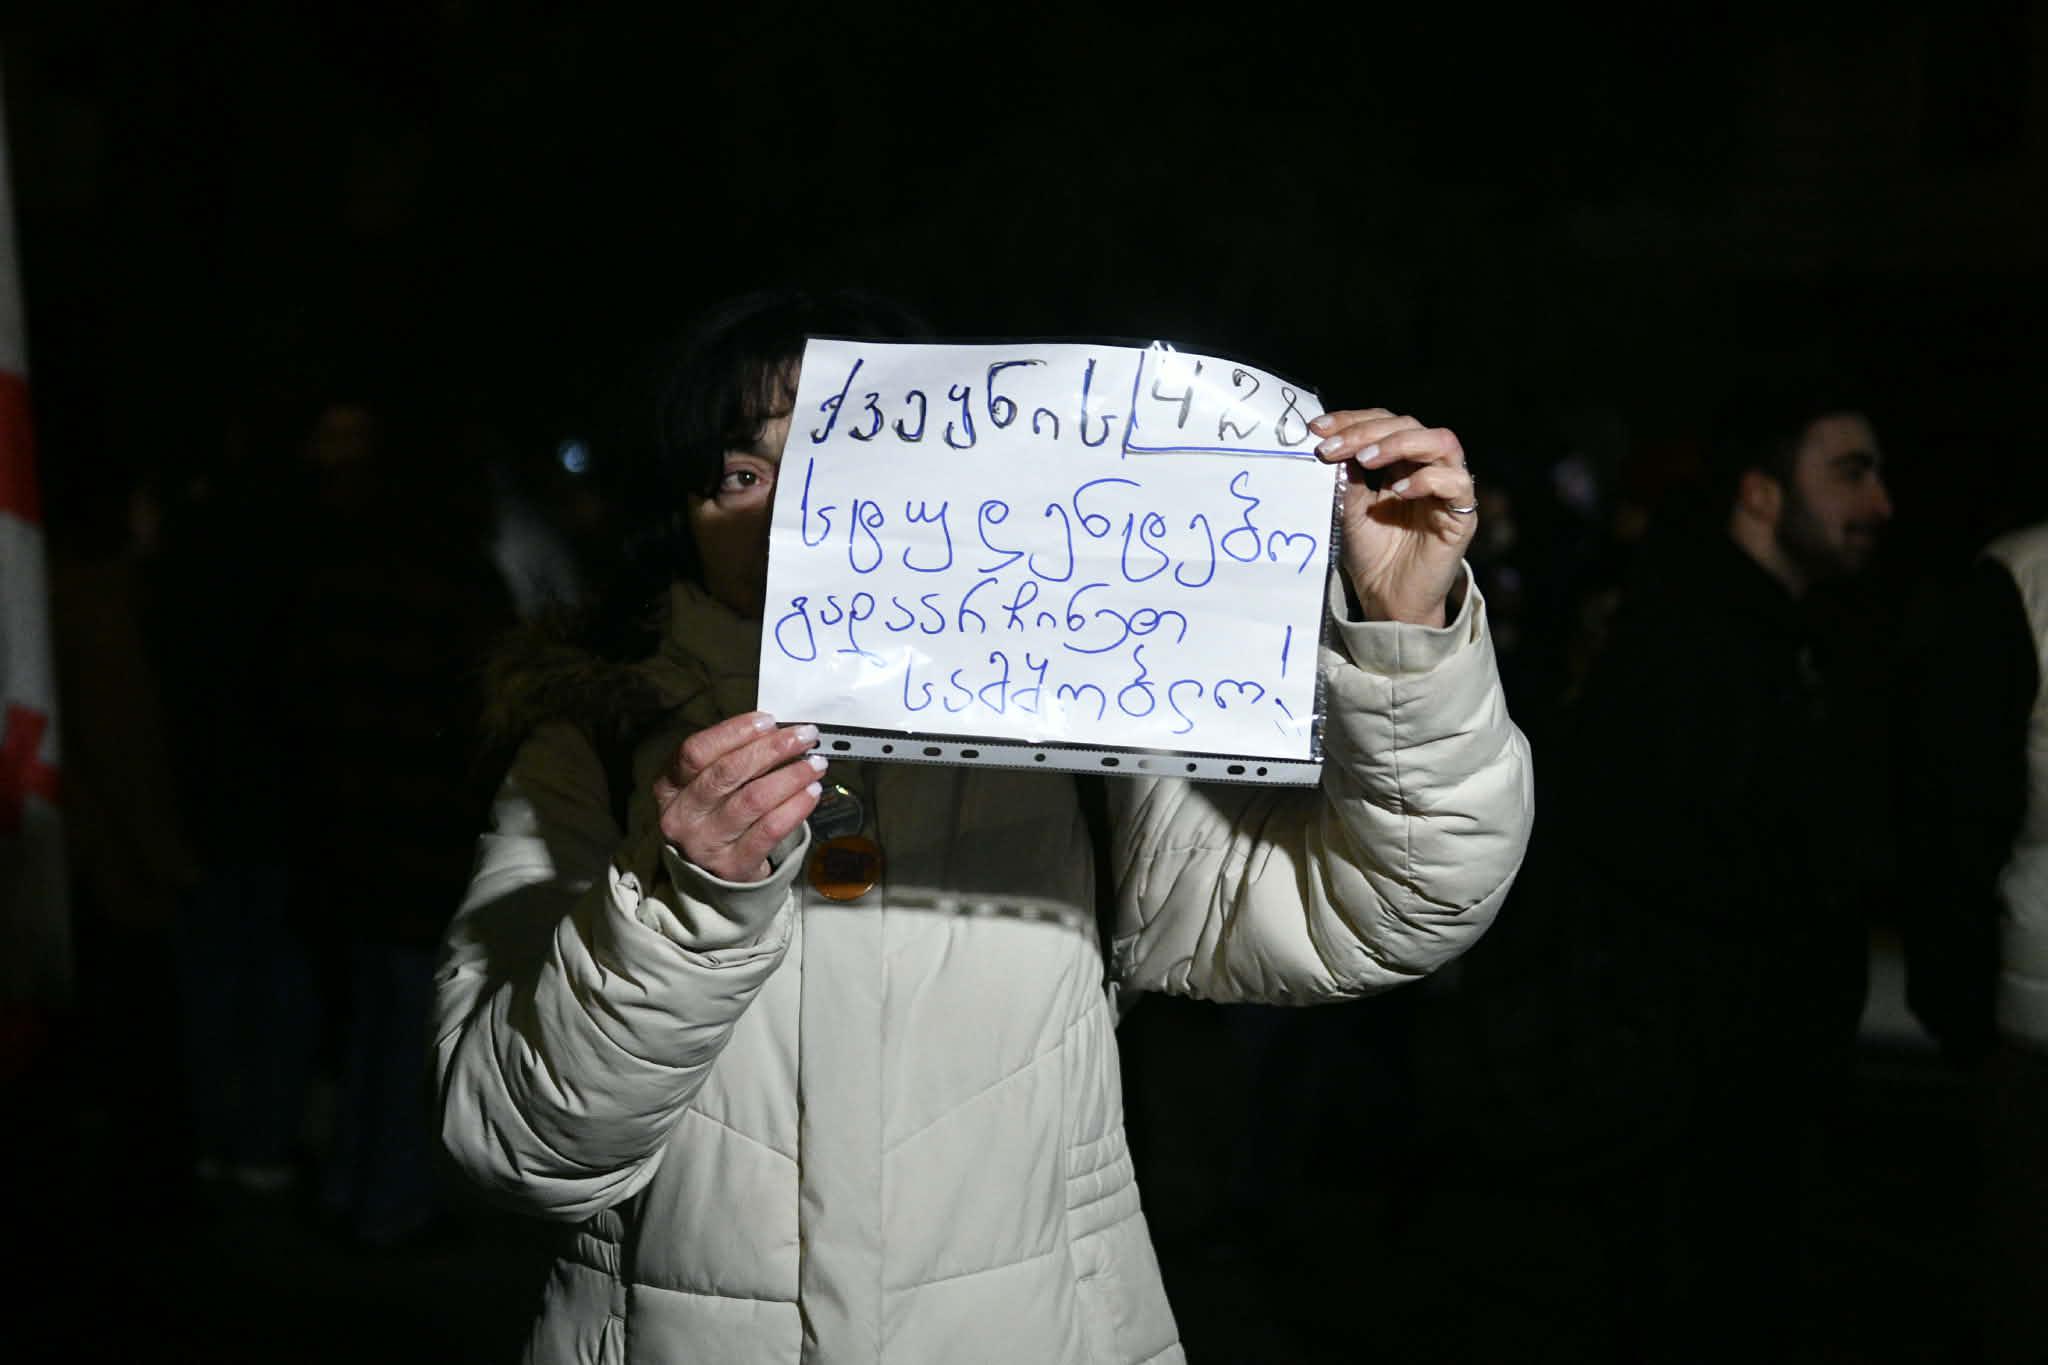 ქვეყნის 428
სტუდენტებო
გადაარჩინეთ
სამშობლო!